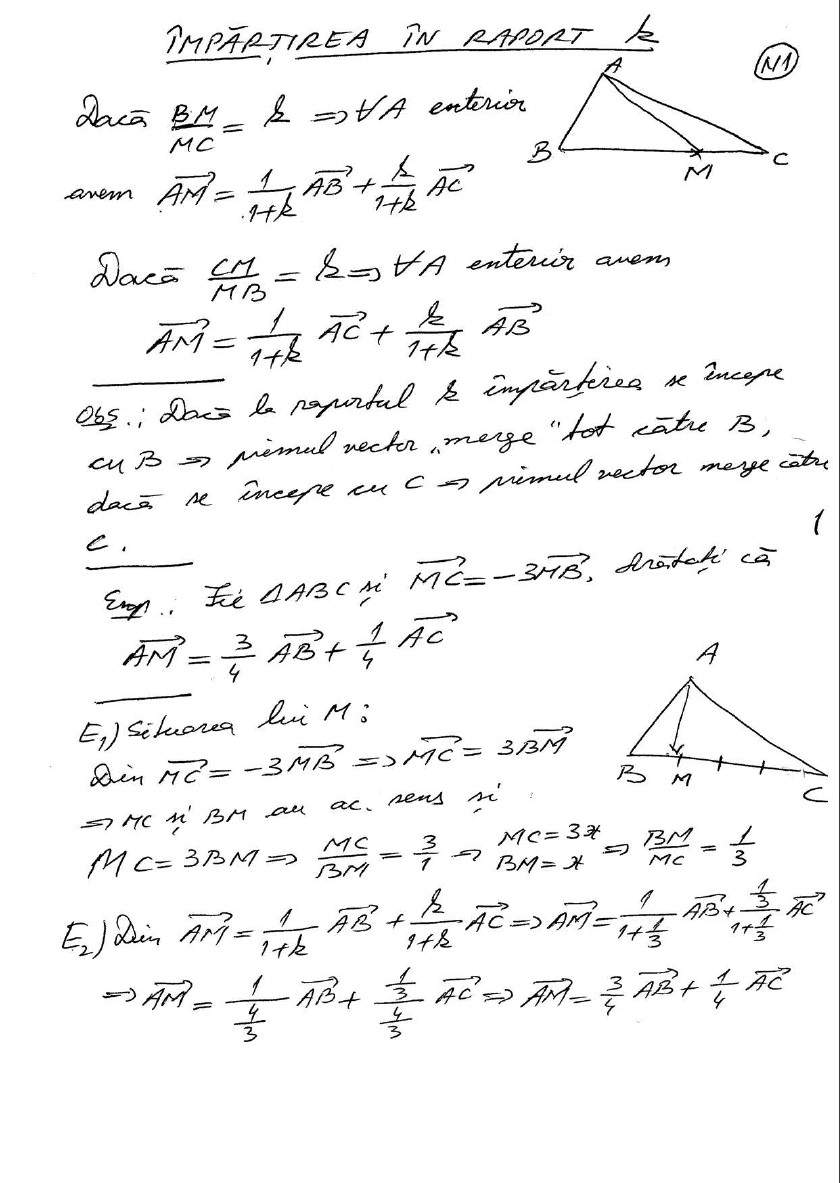 ÎMPĂRȚIREA ÎN RAPORT k
N1
Dacă BM/MC = k ⇒ ∀A exterior
A
B
M
C
avem AM⃗ = 1/(1+k) AB⃗ + k/(1+k) AC⃗
Dacă CM/MB = k ⇒ ∀A exterior avem
AM⃗ = 1/(1+k) AC⃗ + k/(1+k) AB⃗
Obs.: Dacă la raportul k împărțirea se începe
cu B ⇒ primul vector „merge" tot către B,
dacă se începe cu C ⇒ primul vector merge către
C.
1
Exp.: Fie ΔABC și MC⃗ = -3MB⃗. Arătați că
AM⃗ = 3/4 AB⃗ + 1/4 AC⃗
A
B
M
C
E₁) Situarea lui M:
Din MC⃗ = -3MB⃗ ⇒ MC⃗ = 3BM⃗
⇒ MC și BM au ac. sens și
MC = 3BM ⇒ MC/BM = 3/1 ⇒ MC = 3x BM = x ⇒ BM/MC = 1/3
E₂) Din AM⃗ = 1/(1+k) AB⃗ + k/(1+k) AC⃗ ⇒ AM⃗ = 1/(1+1/3) AB⃗ + (1/3)/(1+1/3) AC⃗
⇒ AM⃗ = 1/(4/3) AB⃗ + (1/3)/(4/3) AC⃗ ⇒ AM⃗ = 3/4 AB⃗ + 1/4 AC⃗